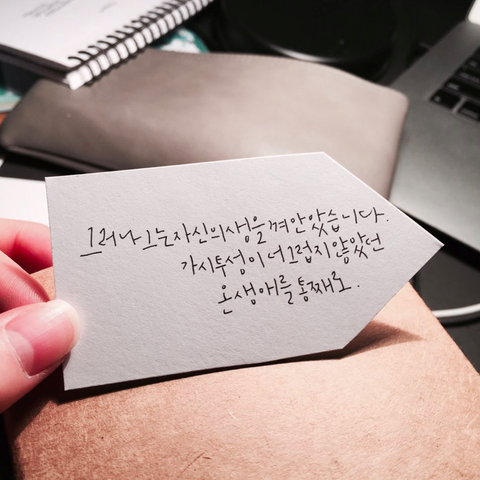 그러나 그는 자신의 생을 껴안았습니다.
가시투성이 너그럽지 않았던
온 생애를 통째로.